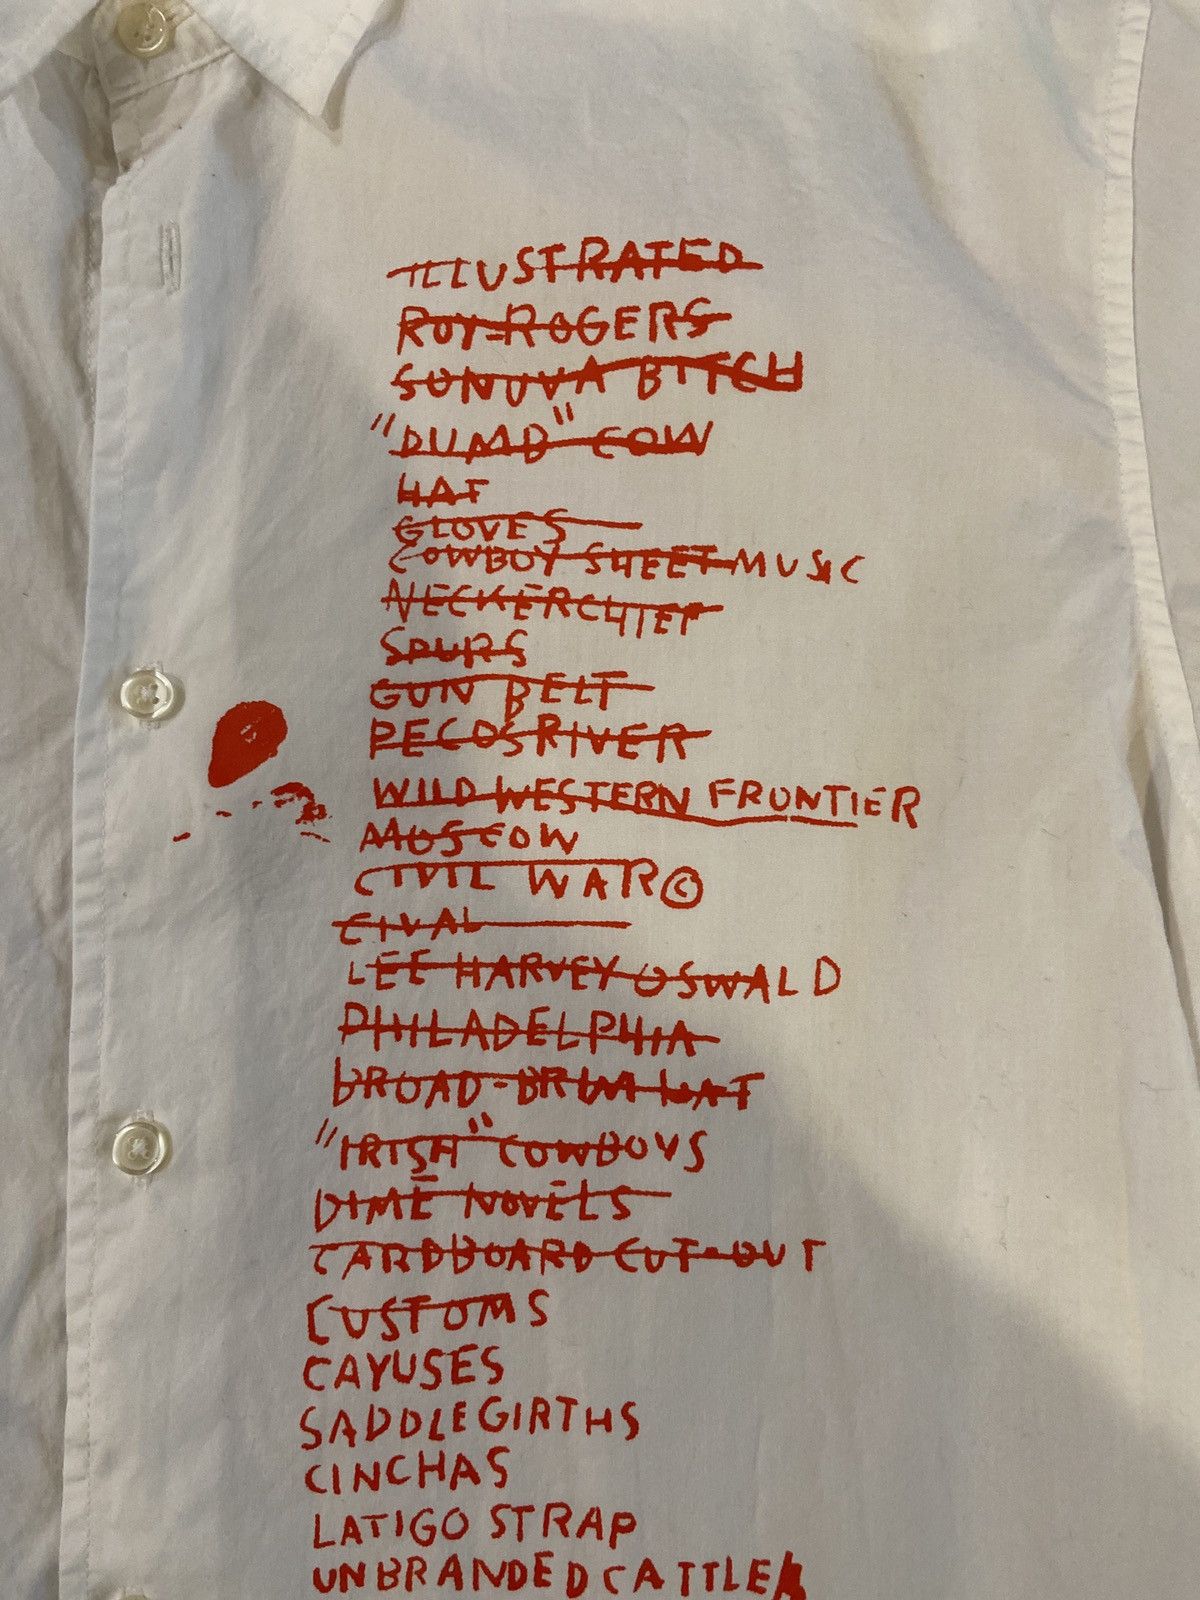 ILLUSTRATED
ROY-ROGERS
SONUVA BITCH
"DUMB" COW
HAT
GLOVES
COWBOY SHEET MUSIC
NECKERCHIEF
SPURS
GUN BELT
PECOS RIVER
WILD WESTERN FRONTIER
MOSCOW
CIVIL WAR©
CIVAL
LEE HARVEY OSWALD
PHILADELPHIA
BROAD-BRIM HAT
"IRISH" COWBOYS
DIME NOVELS
CARDBOARD CUT-OUT
CUSTOMS
CAYUSES
SADDLE GIRTHS
CINCHAS
LATIGO STRAP
UNBRANDED CATTLE